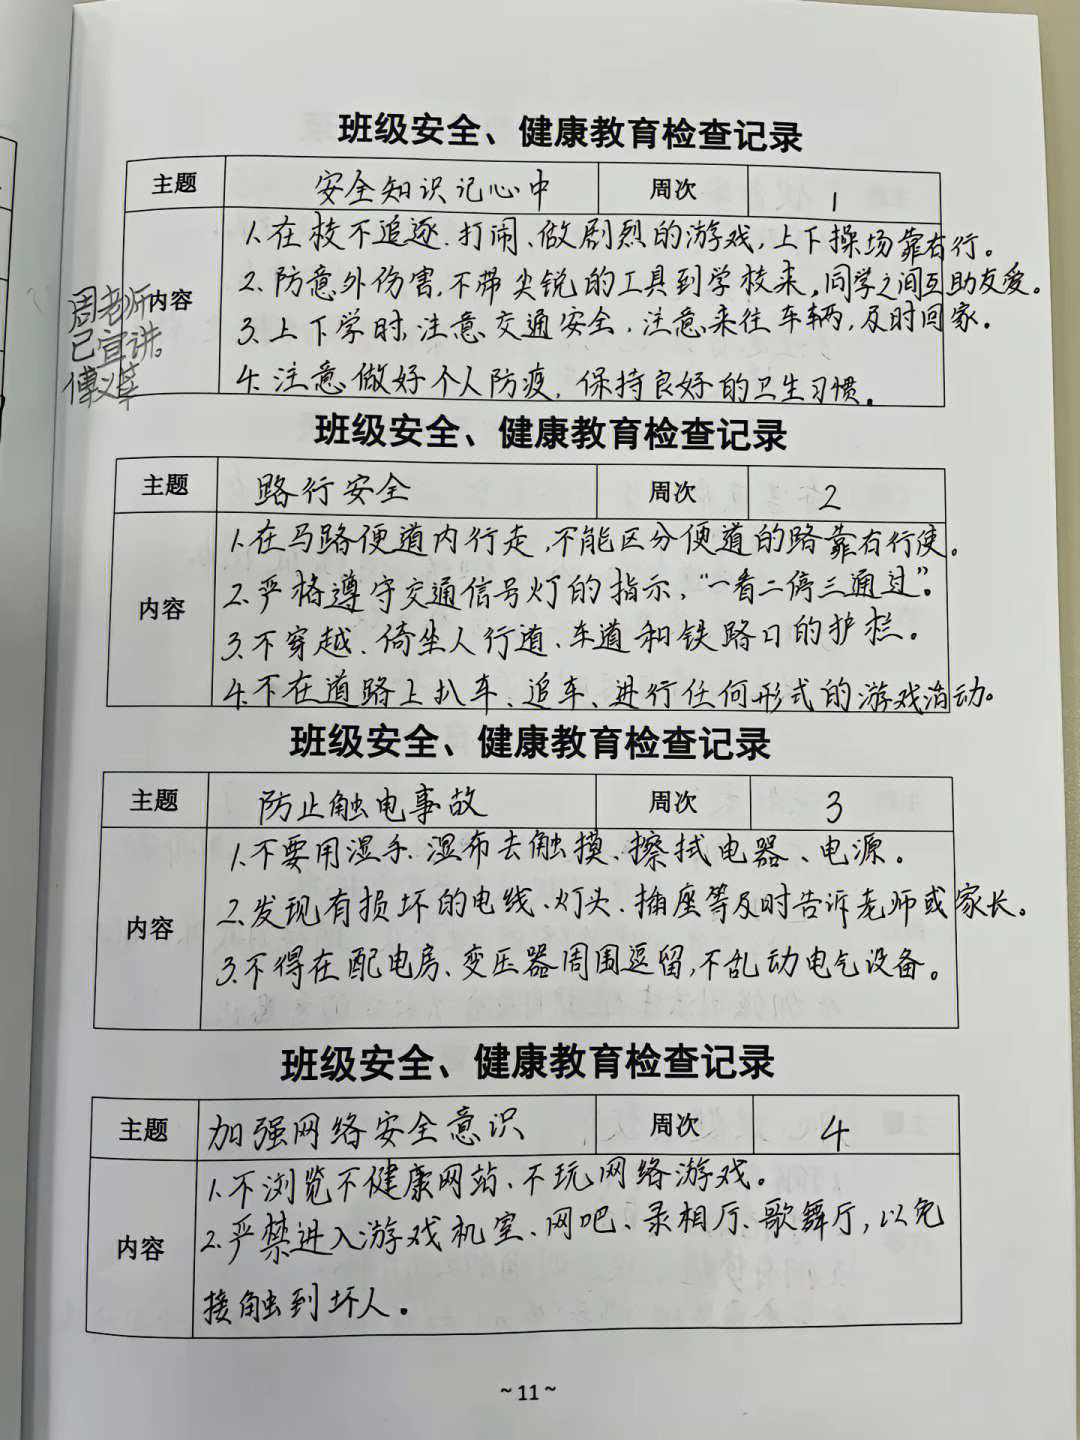 班级安全、健康教育检查记录
主题 安全知识记心中 周次 1
内容
1.在校不追逐、打闹、做剧烈的游戏,上下操场靠右行。
2.防意外伤害,不带尖锐的工具到学校来,同学之间互助友爱。
3.上下学时,注意交通安全,注意来往车辆,及时回家。
4.注意做好个人防疫,保持良好的卫生习惯。
周老师
已宣讲。
班级安全、健康教育检查记录
主题 路行安全 周次 2
内容
1.在马路便道内行走,不能区分便道的路靠右行使。
2.严格遵守交通信号灯的指示,“一看二停三通过”。
3.不穿越、倚坐人行道、车道和铁路口的护栏。
4.不在道路上扒车、追车、进行任何形式的游戏活动。
班级安全、健康教育检查记录
主题 防止触电事故 周次 3
内容
1.不要用湿手、湿布去触摸、擦拭电器、电源。
2.发现有损坏的电线、灯头、插座等及时告诉老师或家长。
3.不得在配电房、变压器周围逗留,不乱动电气设备。
班级安全、健康教育检查记录
主题 加强网络安全意识 周次 4
内容
1.不浏览不健康网站、不玩网络游戏。
2.严禁进入游戏机室、网吧、录相厅、歌舞厅,以免
接触到坏人。
~ 11 ~